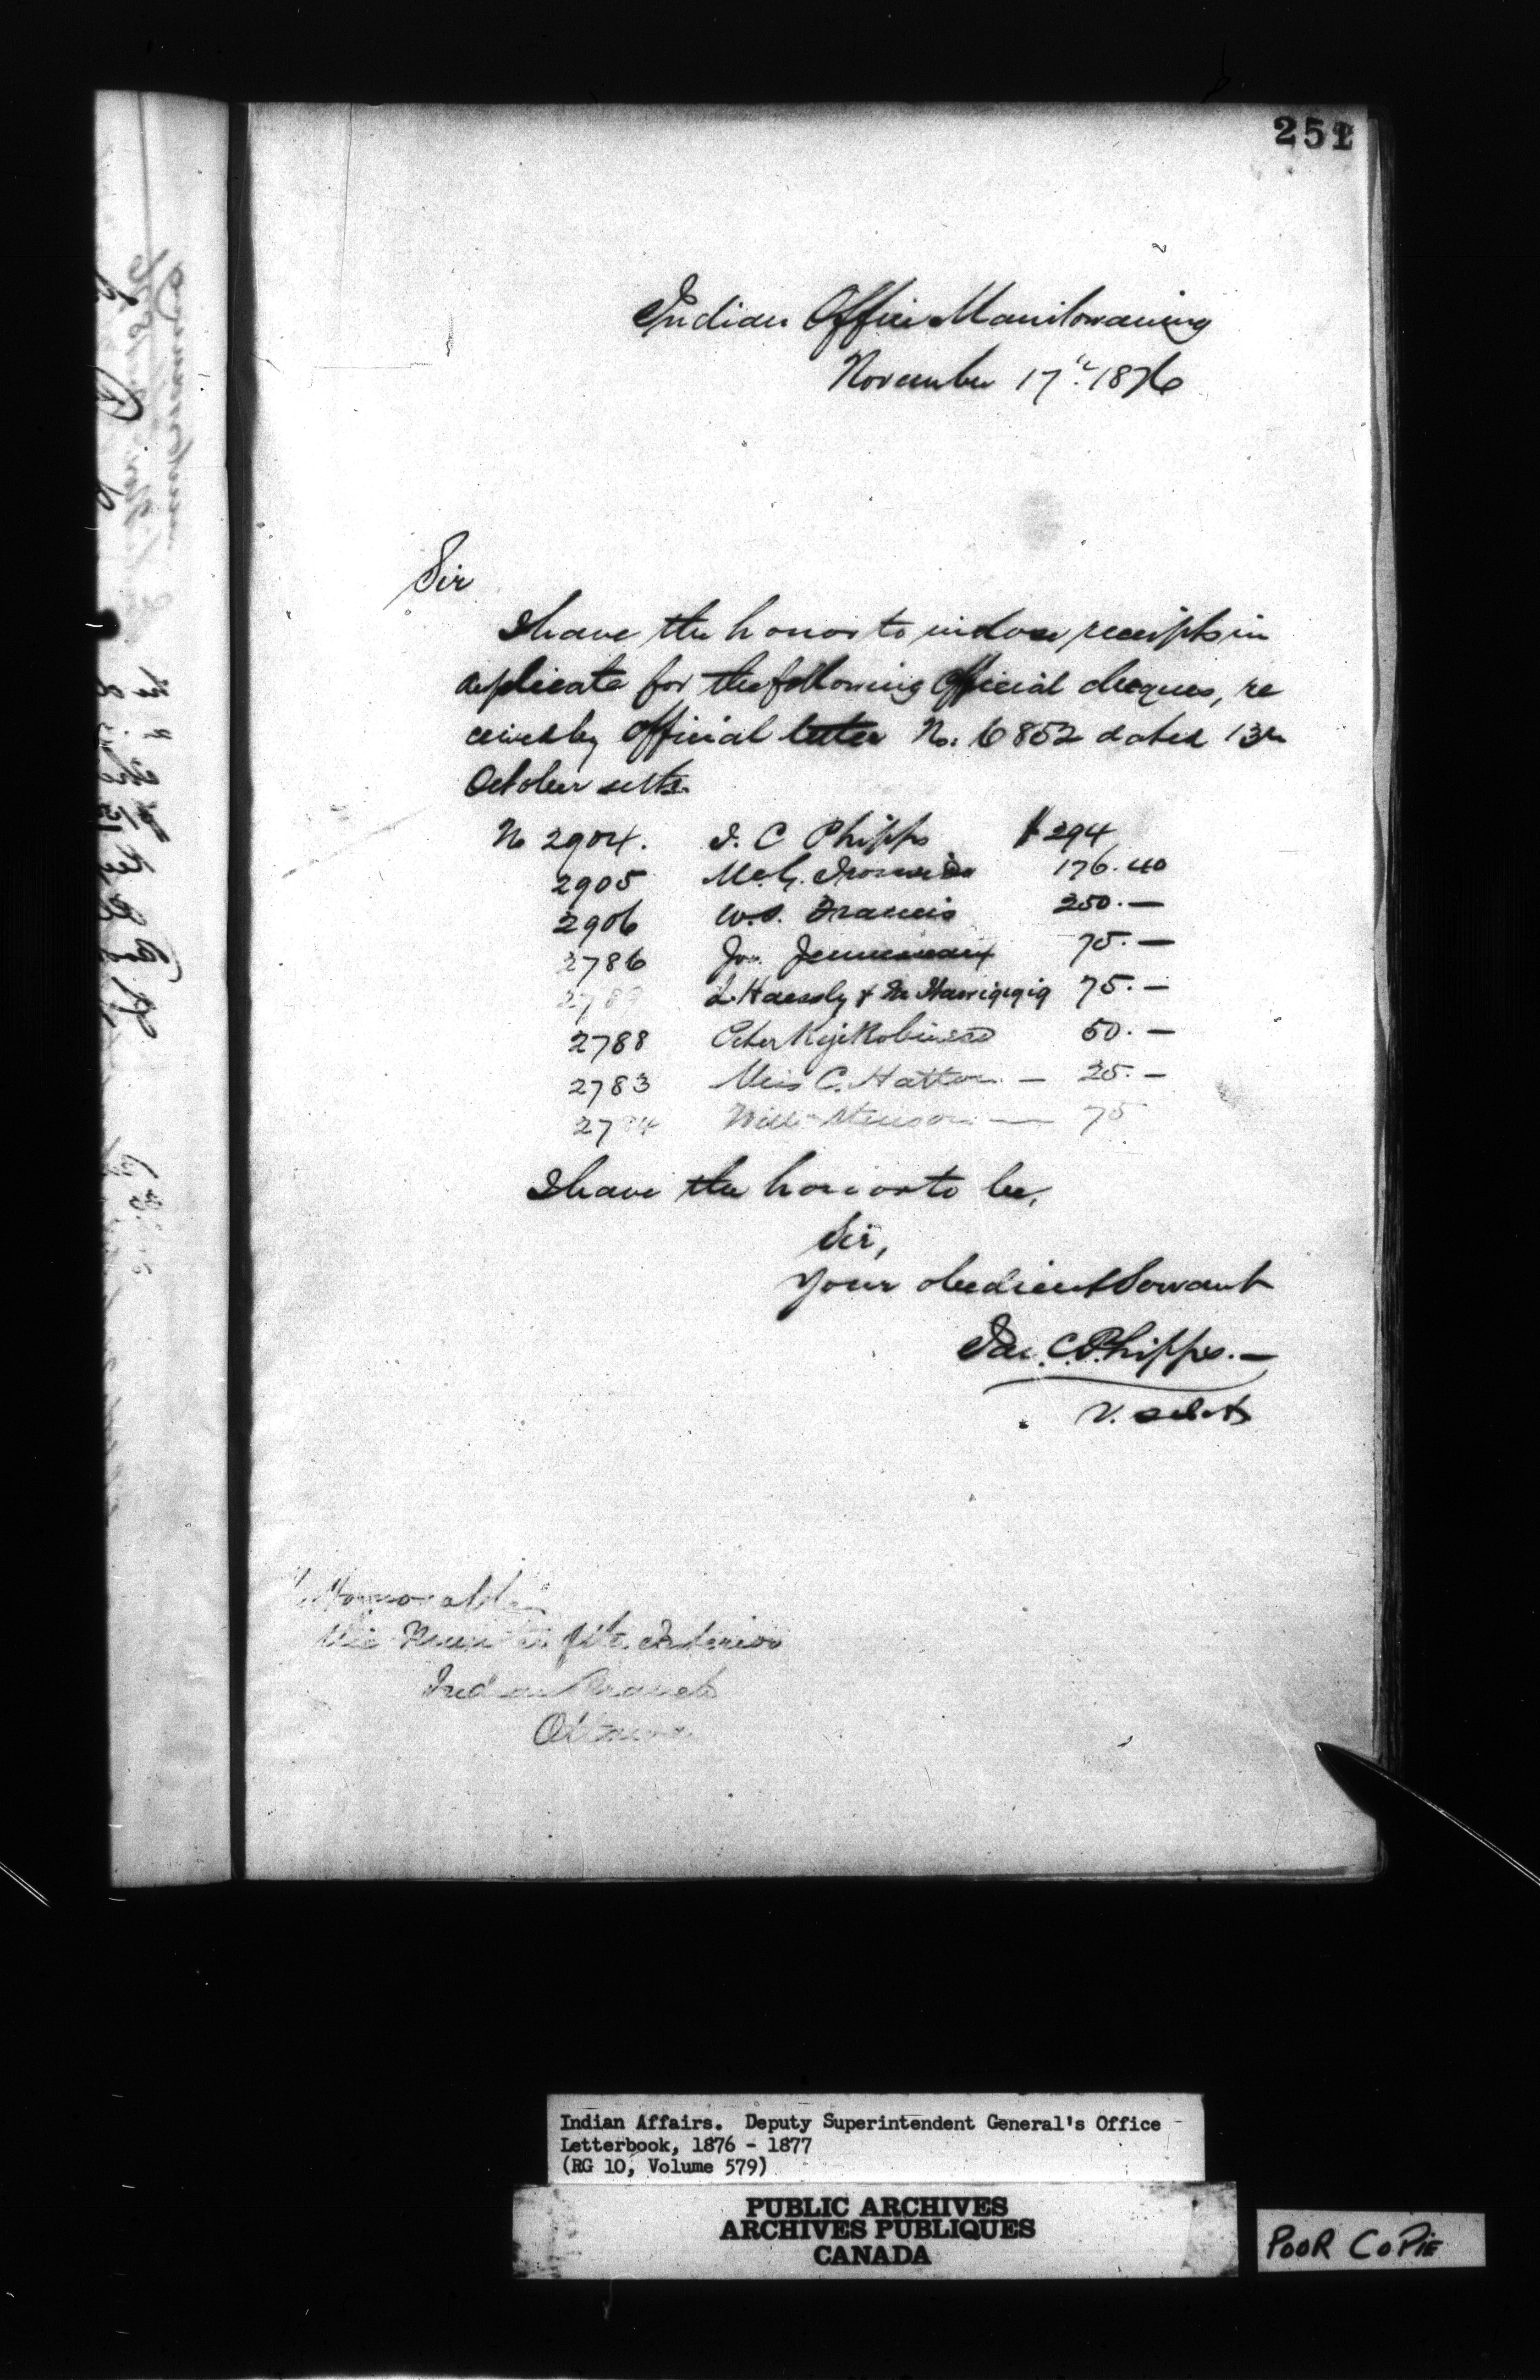 251
Indian Office Manitowaning
November 17th 1876
Sir
I have the honor to inclose receipts in
duplicate for the following Official cheques, re
ceived by official letter No. 6852 dated 13th
October ulto.
No 2904. J. C Phipps $294
2905 176.40
2906 W.S. Francis 250.—
2786 Jos. 75.—
75.—
2788 Peter 50.—
2783 Miss C. Hatton — 25.—
Will — 75
I have the honor to be,
Sir,
Your obedient Servant
Jas. C. Phipps.—
V. Supt
Honorable
The Minister of the Interior
Indian Branch
Ottawa
Indian Affairs. Deputy Superintendent General's Office
Letterbook, 1876 - 1877
(RG 10, Volume 579)
PUBLIC ARCHIVES
ARCHIVES PUBLIQUES
CANADA
POOR COPIE